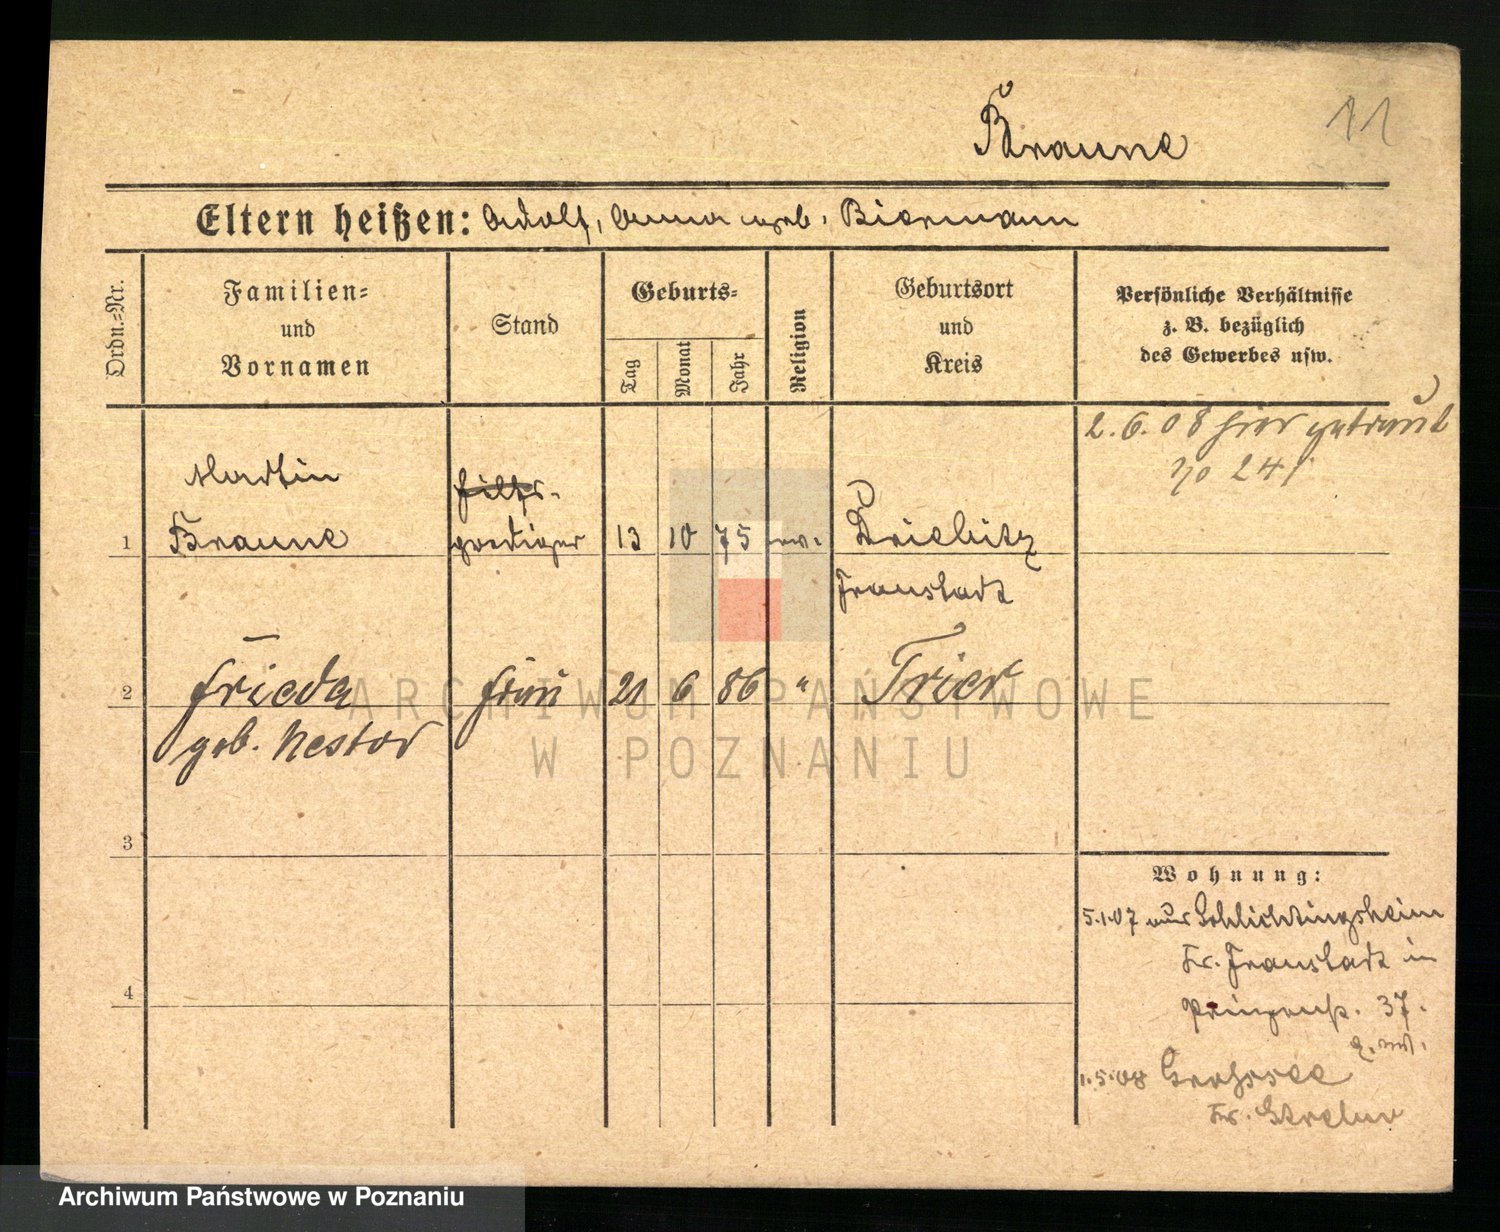 Braune
11
Eltern heißen: Adolf, Anna geb. Biermann
Ordn.-Nr.
Familien-
und
Vornamen
Stand
Geburts-
Tag
Monat
Jahr
Religion
Geburtsort
und
Kreis
Persönliche Verhältnisse
z. B. bezüglich
des Gewerbes usw.
2.6.08 hier getraut
No 241
Martin
Hilfs-
1 Braune prediger 13 10 75 ev. Driebitz
Fraustadt
2 Frieda Frau 21 6 86 " Trier
geb. Nestor
3
4
Wohnung:
5.1.07 aus Schlichtingsheim
Kr. Fraustadt in
Prinzenstr. 37.
1.5.08 Grossee
Kr. Strelno
ARCHIWUM PAŃSTWOWE
W POZNANIU
Archiwum Państwowe w Poznaniu